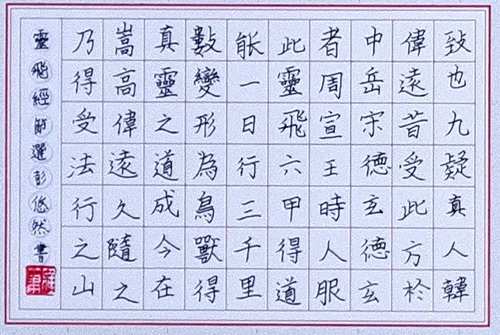 致也九疑真人韓
偉遠昔受此方於
中岳宋德玄德玄
者周宣王時人服
此靈飛六甲得道
能一日行三千里
數變形為鳥獸得
真靈之道成今在
嵩高偉遠久隨之
乃得受法行之山
靈飛經節選彭悠然書